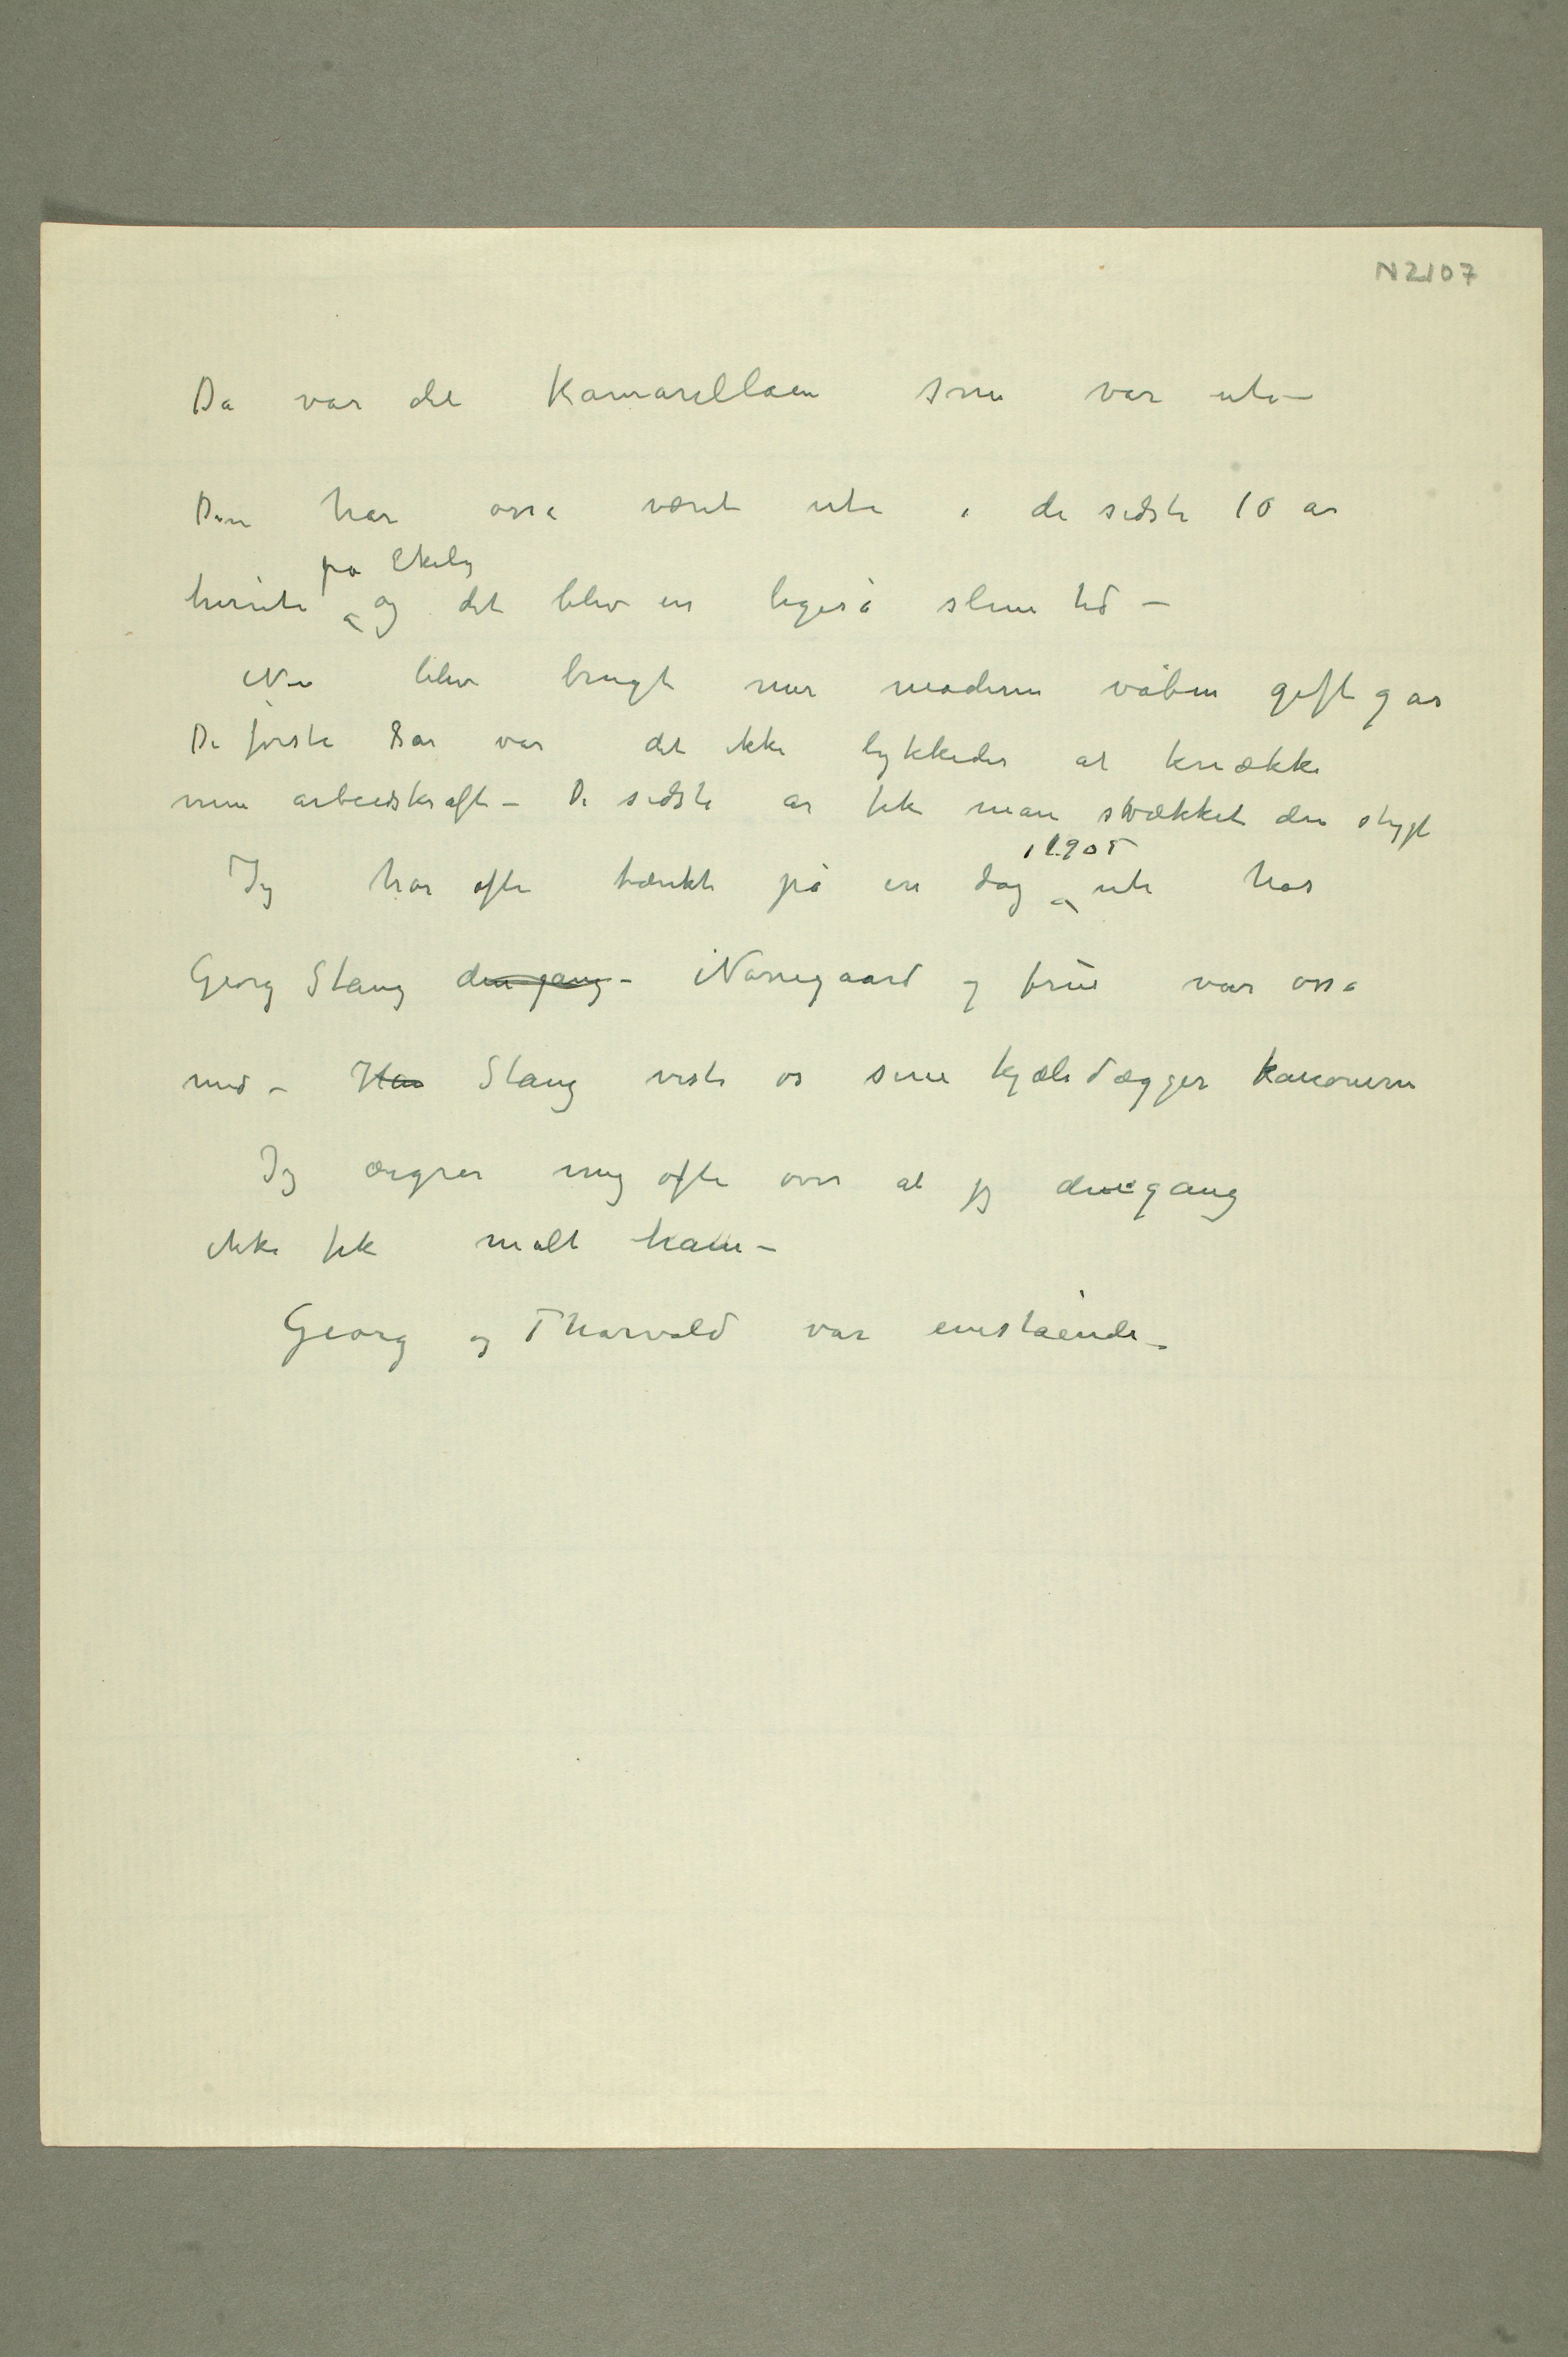 N 2107
Da var det Kamarillaen som var ute –
Den har osså været ute i de sidste 10 år
på Ekely
herute og det blev en ligeså slem tid –
Nu blev brugt mer moderne våben giftgas
De første 8 år var det ikke lykkedes at knække
min arbeidskraft – De sidste år fik man svækket den stygt
i 1905
Jeg har ofte tænkt på en dag ute hos
Georg Stang dengang – Nørregaard og frue var osså
med – Han Stang viste os sine kjæledægger kanonerne
Jeg ærgrer mig ofte over at jeg dengang
ikke fik malt ham –
Georg og Thorvald var enestående –